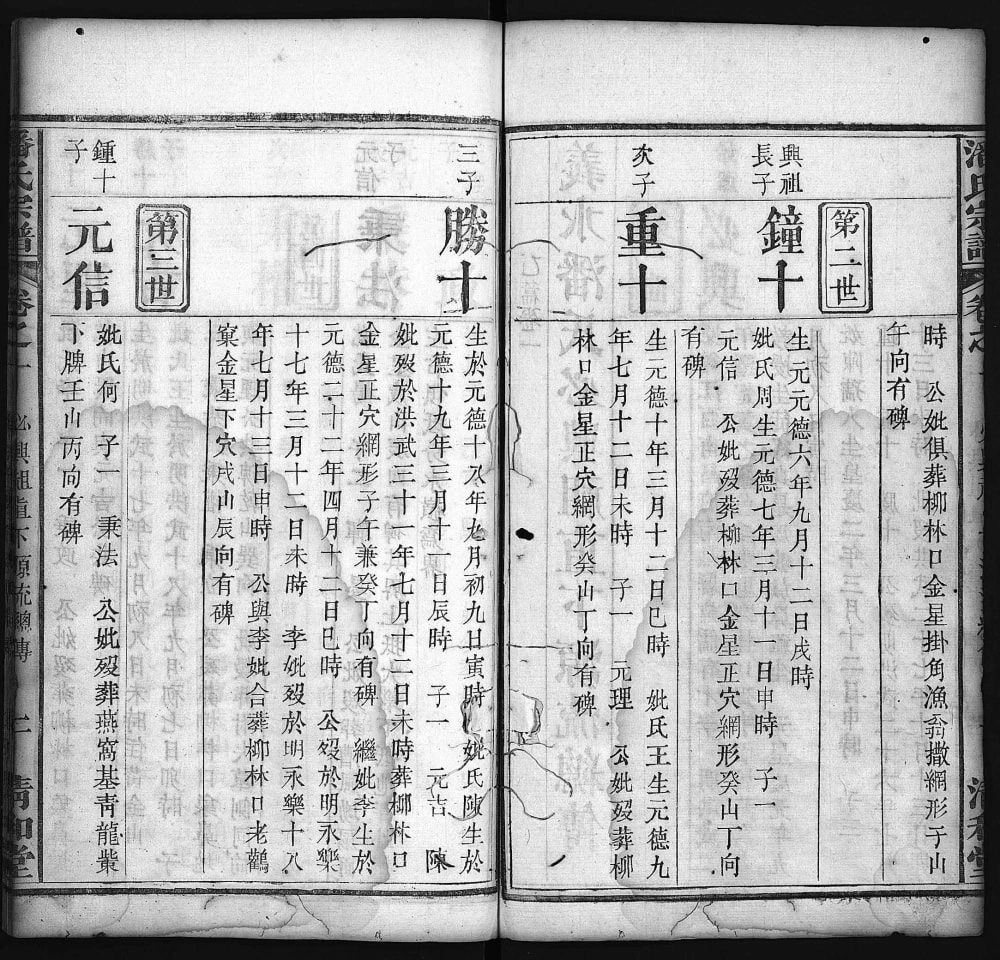 時　公妣俱葬柳林口金星掛角漁翁撒網形子山
午向有碑
第二世
興祖
長子
鐘十
生元元德六年九月十二日戌時
妣氏周生元德七年三月十一日申時　子一
元信　公妣歿葬柳林口金星正穴網形癸山丁向
有碑
次子
重十
生元德十年三月十二日巳時　妣氏王生元德九
年七月十二日未時　子一　元理　公妣歿葬柳
林口金星正穴網形癸山丁向有碑
三子
勝十
生於元德十八年九月初九日寅時　妣氏陳生於
元德十九年三月十一日辰時　子一　元吉　陳
妣歿於洪武三十一年七月十二日未時葬柳林口
金星正穴網形子午兼癸丁向有碑　繼妣李生於
元德二十二年四月十二日巳時　公歿於明永樂
十七年三月十二日未時　李妣歿於明永樂十八
年七月十三日申時　公與李妣合葬柳林口老鸛
窠金星下穴戌山辰向有碑
第三世
鍾十
子
元信
妣氏何　子一　秉法　公妣歿葬燕窩基青龍紫
下脾壬山丙向有碑
潘氏宗譜
卷之
必興祖直下源流總傳
二
清和堂